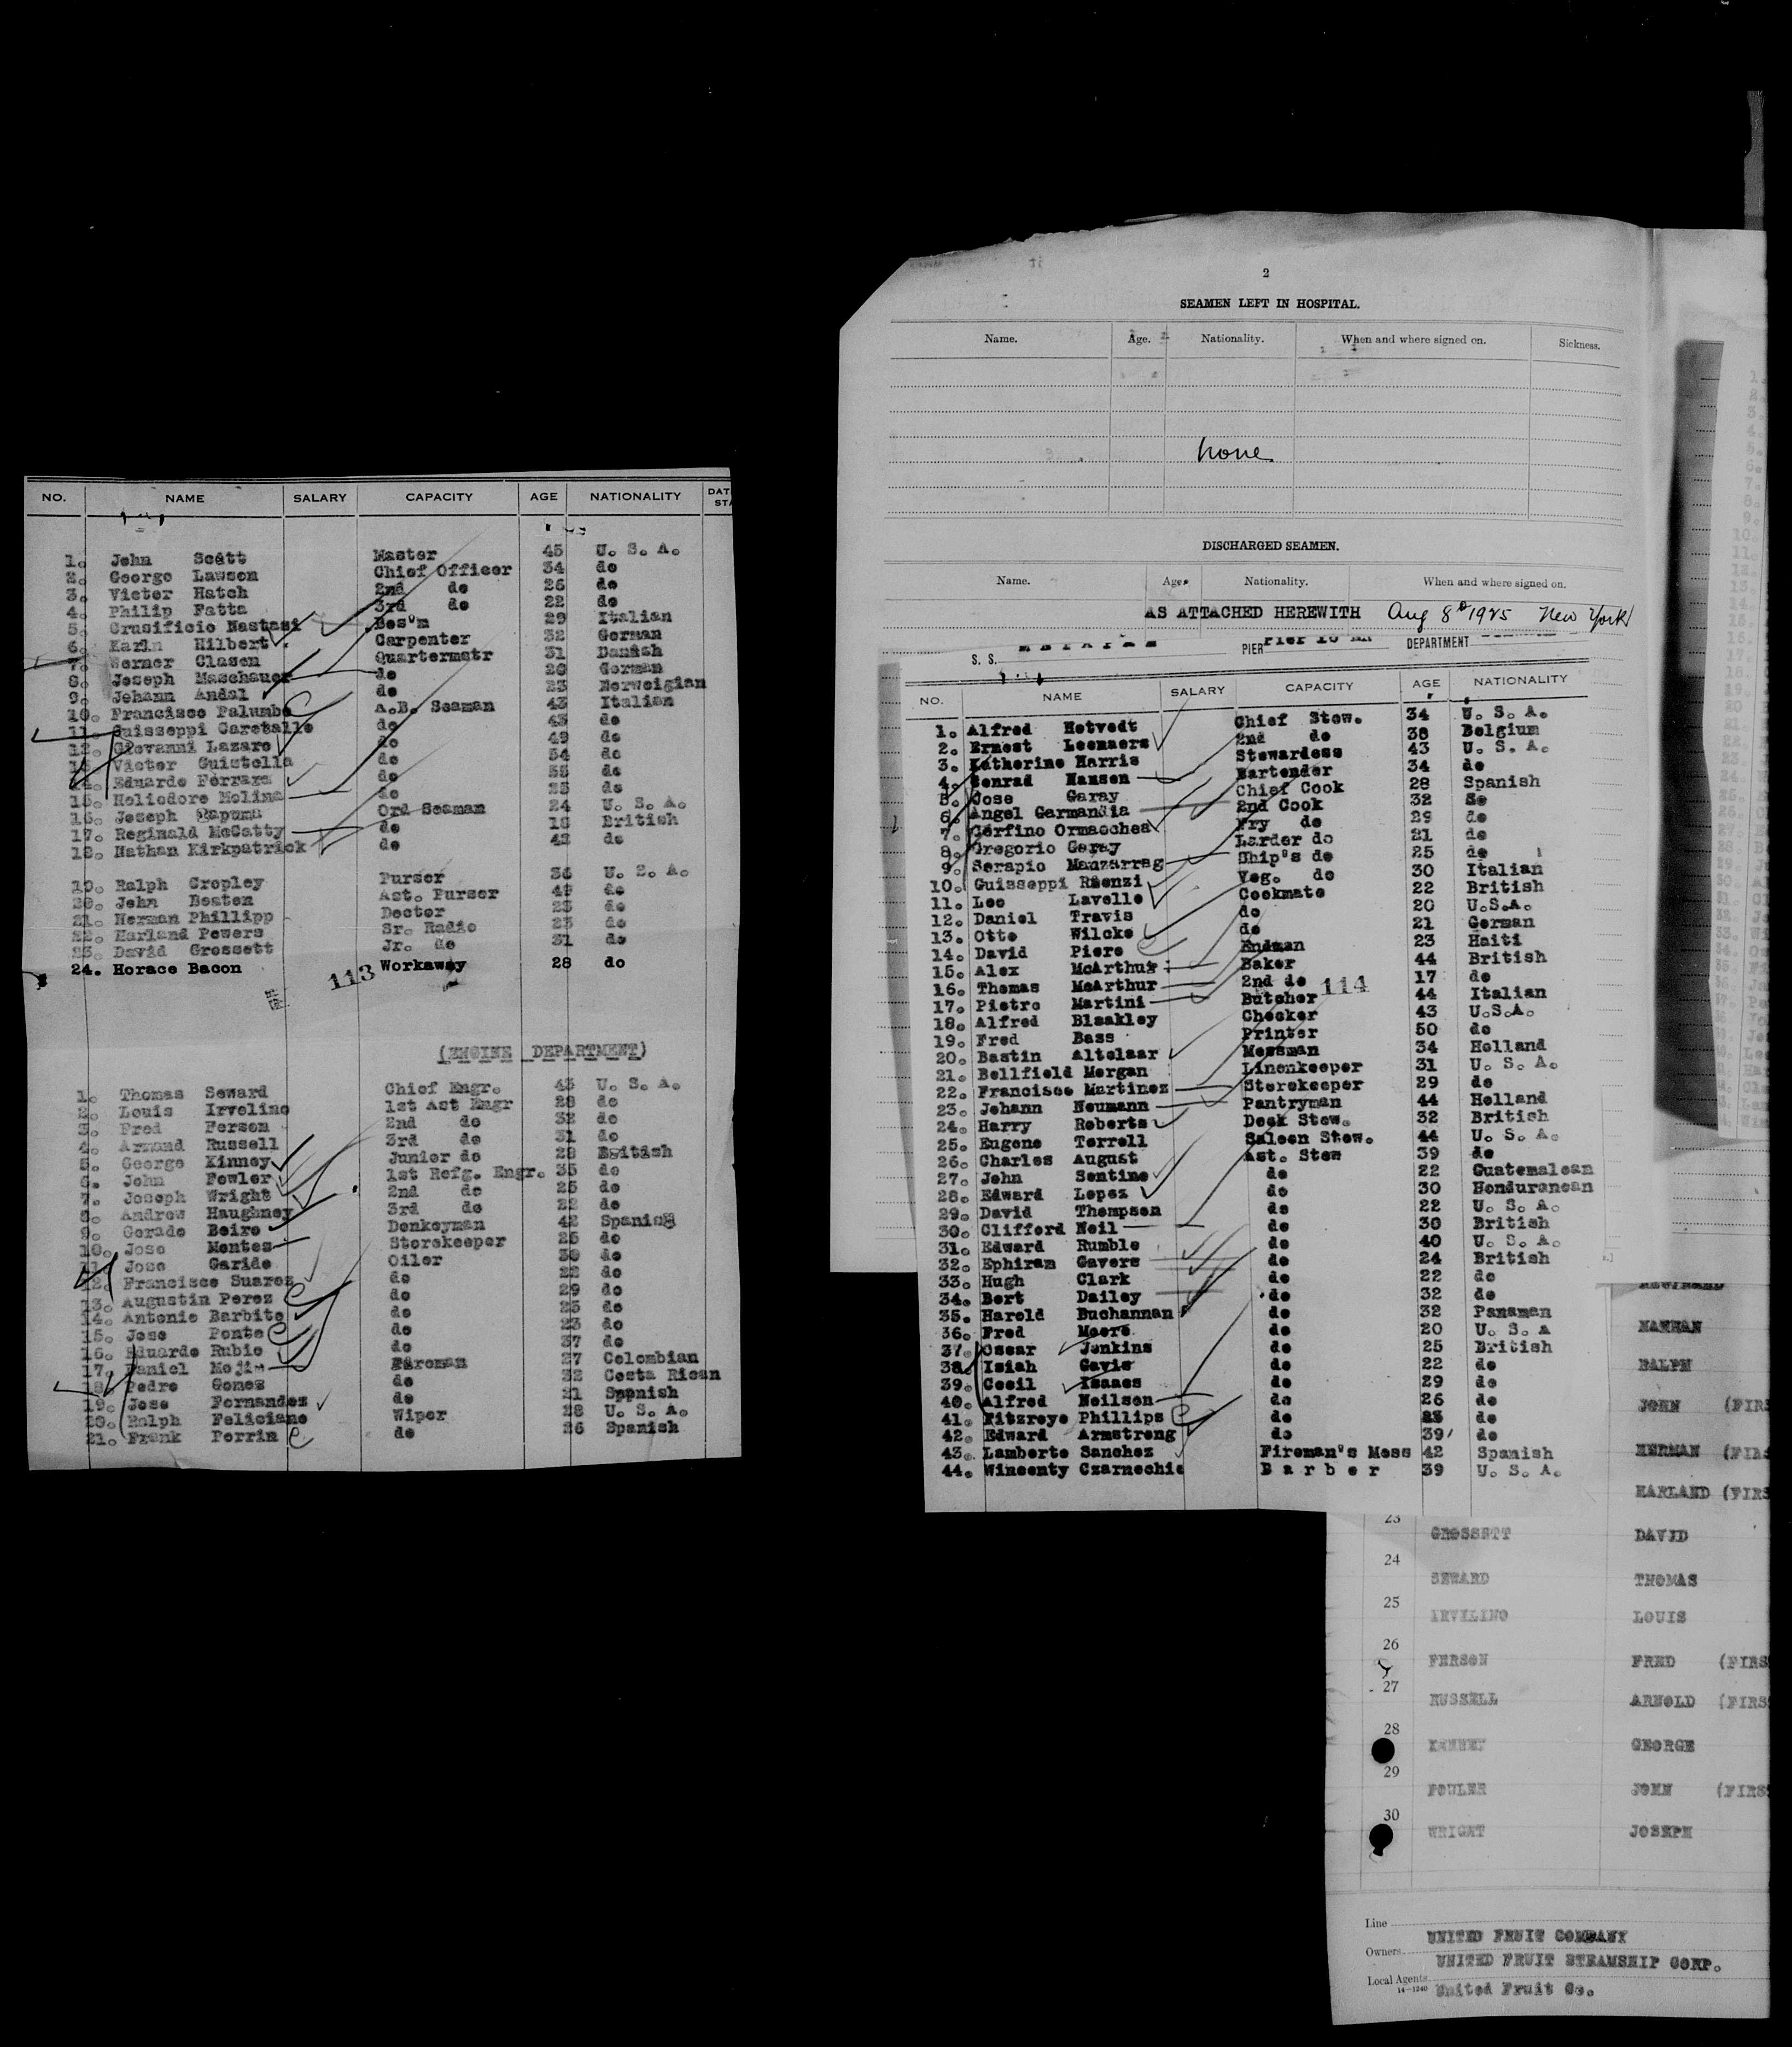 NO. NAME SALARY CAPACITY AGE NATIONALITY
1. John Scott Master 45 U. S. A.
2. George Lawson Chief Officer 34 do
3. Victor Hatch 2nd do 26 do
4. Philip Fatta 3rd do 22 do
5. Crusificio Nastasi Bos'm 29 Italian
6. Karln Hilbert Carpenter 32 German
7. Werner Clasen Quartermstr 31 Danish
8. Joseph Maschauer do 20 German
9. Johann Andal do 23 Norweigian
10. Francisco Palumbo A.B. Seaman 43 Italian
11. Guisseppi Carotallo do 43 do
12. Giovanni Lazaro do 49 do
13. Victor Guistella do 54 do
14. Eduardo Ferrara do 53 do
15. Heliodoro Molina do 23 do
16. Joseph Rapuma Ord Seaman 24 U. S. A.
17. Reginald McCatty do 18 British
18. Nathan Kirkpatrick do 42 do
19. Ralph Cropley Purser 36 U. S. A.
20. John Beaten Ast. Purser 49 do
21. Herman Phillipp Doctor 23 do
22. Harland Powers Sr. Radio 23 do
23. David Grossett Jr. do 31 do
24. Horace Bacon Workaway 28 do
113
(ENGINE DEPARTMENT)
1. Thomas Seward Chief Engr. 43 U. S. A.
2. Louis Irvelino 1st Ast Engr 28 do
3. Fred Ferson 2nd do 32 do
4. Armond Russell 3rd do 31 do
5. George Kinney Junior do 28 British
6. John Fowler 1st Refg. Engr. 35 do
7. Joseph Wright 2nd do 25 do
8. Andrew Haughney 3rd do 22 do
9. Gerado Beiro Donkeyman 42 Spanish
10. Jose Montes Storekeeper 25 do
11. Jose Garido Oiler 30 do
12. Francisco Suarez do 22 do
13. Augustin Perez do 29 do
14. Antonio Barbito do 23 do
15. Jose Ponte do 23 do
16. Eduardo Rubio do 37 do
17. Daniel Mojia Fireman 27 Colombian
18. Pedro Gomez do 32 Costa Rican
19. Jose Fernandez do 21 Spanish
20. Ralph Feliciano Wiper 28 U. S. A.
21. Frank Perrin do 26 Spanish
2
SEAMEN LEFT IN HOSPITAL.
Name. Age. Nationality. When and where signed on. Sickness.
None
DISCHARGED SEAMEN.
Name. Age. Nationality. When and where signed on.
AS ATTACHED HEREWITH Aug 8th 1925 New York
S. S. PIER DEPARTMENT
NO. NAME SALARY CAPACITY AGE NATIONALITY
1. Alfred Hotvedt Chief Stew. 34 U. S. A.
2. Ernest Leemaers 2nd do 38 Belgium
3. Katherine Harris Stewardess 43 U. S. A.
4. Conrad Hansen Bartender 34 do
5. Jose Garay Chief Cook 28 Spanish
6. Angel Garmandia 2nd Cook 32 do
7. Corfino Ormaechea Fry do 29 do
8. Gregorio Garay Larder do 21 do
9. Serapio Manzarrag Ship's do 25 do
10. Guisseppi Rienzi Veg. do 30 Italian
11. Leo Lavelle Cookmate 22 British
12. Daniel Travis do 20 U.S.A.
13. Otto Wilcke do 21 German
14. David Piere Endman 23 Haiti
15. Alex McArthur Baker 44 British
16. Thomas McArthur 2nd do 17 do
114
17. Pietro Martini Butcher 44 Italian
18. Alfred Bleakley Checker 43 U.S.A.
19. Fred Bass Printer 50 do
20. Bastin Altelaar Messman 34 Holland
21. Bellfield Morgan Linenkeeper 31 U. S. A.
22. Francisco Martinez Storekeeper 29 do
23. Johann Neumann Pantryman 44 Holland
24. Harry Roberts Deck Stew. 32 British
25. Eugene Terrell Saloon Stew. 44 U. S. A.
26. Charles August Ast. Stew 39 do
27. John Sentine do 22 Guatemalean
28. Edward Lopez do 30 Honduranean
29. David Thompson do 22 U. S. A.
30. Clifford Neil do 30 British
31. Edward Rumble do 40 U. S. A.
32. Ephiram Gavers do 24 British
33. Hugh Clark do 22 do
34. Bert Dailey do 32 do
35. Harold Buchannan do 32 Panaman
36. Fred Moore do 20 U. S. A
37. Oscar Jenkins do 25 British
38. Isiah Gavie do 22 do
39. Cecil Isaacs do 29 do
40. Alfred Neilson do 26 do
41. Fitzroye Phillips do 23 do
42. Edward Armstrong do 39 do
43. Lamberto Sanchez Fireman's Mess 42 Spanish
44. Wincenty Czarnechie Barber 39 U. S. A.
NATHAN
RALPH
JOHN (FIRS
HERMAN (FIRS
HARLAND (FIRS
23 GROSSETT DAVID
24 SEWARD THOMAS
25 IRVILINO LOUIS
26 FERSON FRED (FIRS
27 RUSSELL ARNOLD (FIRS
28 KENNEY GEORGE
29 FOULER JOHN (FIRS
30 WRIGHT JOSEPH
Line UNITED FRUIT COMPANY
Owners UNITED FRUIT STEAMSHIP CORP.
Local Agents United Fruit Co.
14-1240